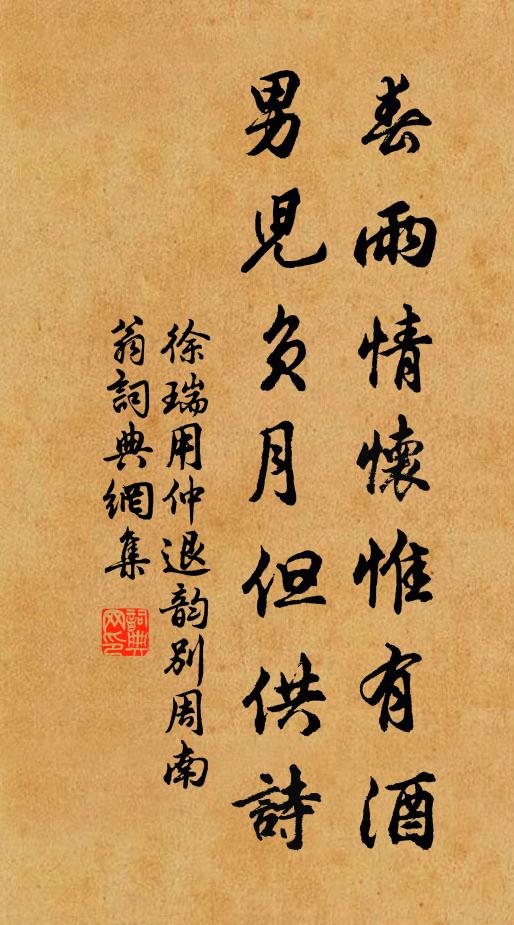 春雨情懷惟有酒
男兒負月但供詩
徐瑞用仲退韵別周南
翁詞典網集
詞典網印